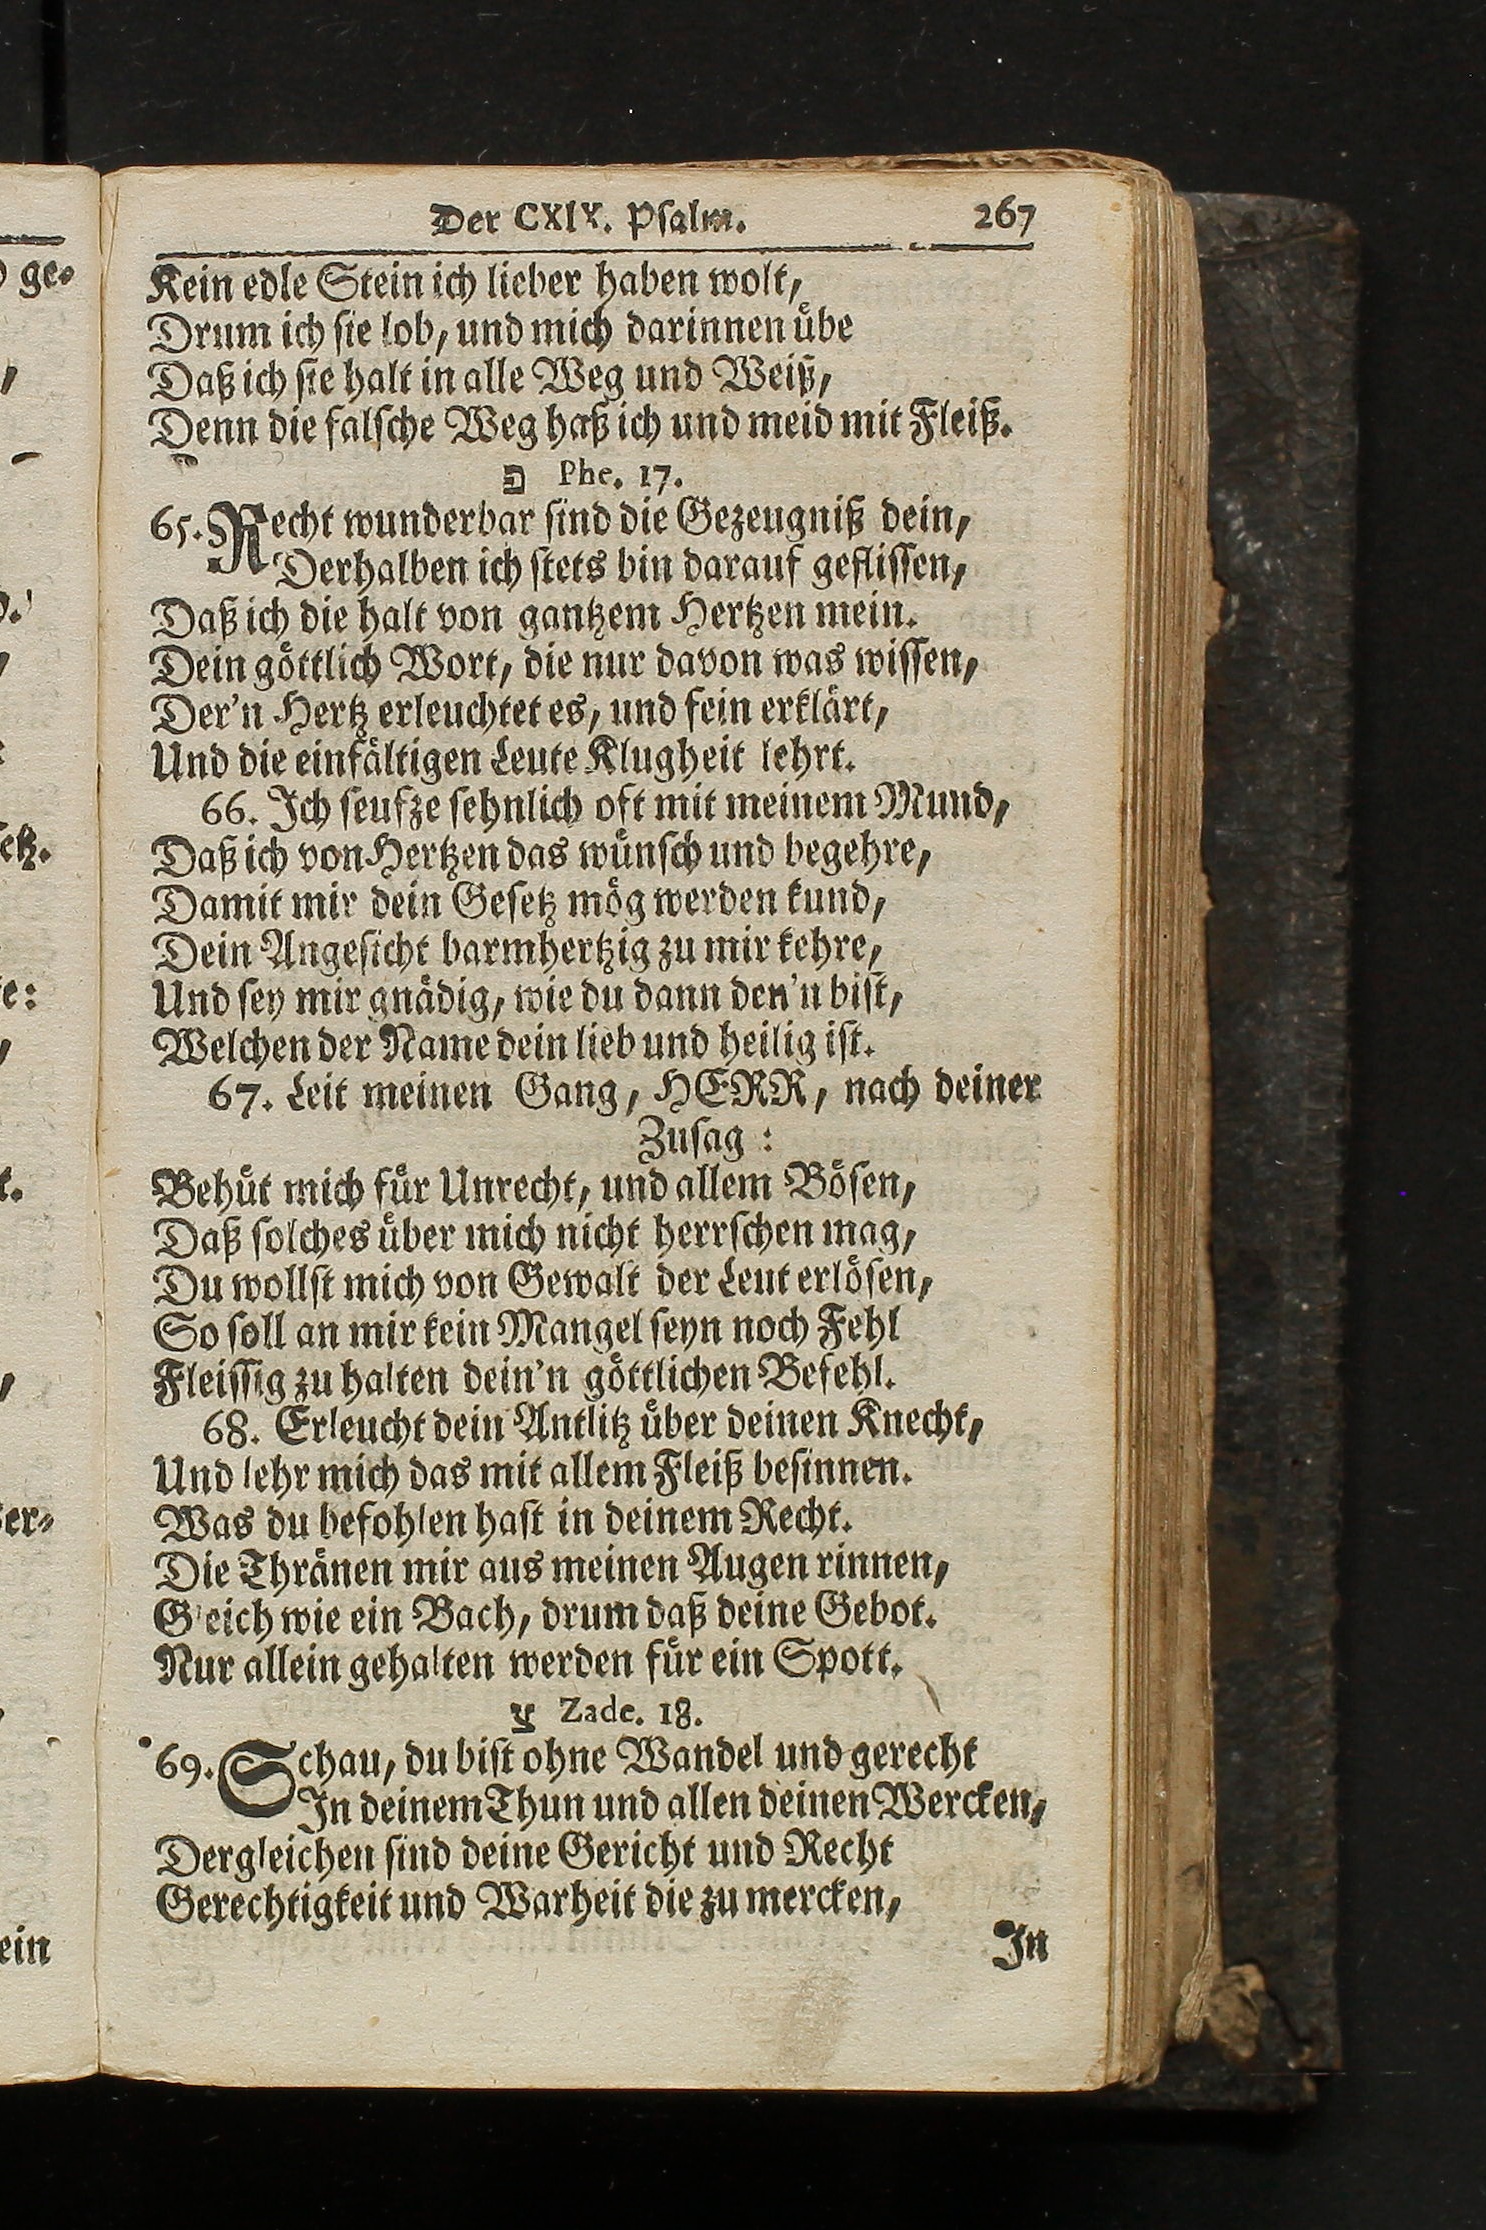 Der CXIX. Psalm. 267
Kein edle Stein ich lieber haben wolt,
Drum ich sie lob, und mich darinnen übe
Daß ich sie halt in alle Weg und Weiß,
Denn die falsche Weg haß ich und meid mit Fleiß.
פ Phe. 17.
65. Recht wunderbar sind die Gezeugniß dein,
Derhalben ich stets bin darauf geflissen,
Daß ich die halt von gantzem Hertzen mein.
Dein göttlich Wort, die nur davon was wissen,
Der'n Hertz erleuchtet es, und fein erklärt,
Und die einfältigen Leute Klugheit lehrt.
66. Ich seufze sehnlich oft mit meinem Mund,
Daß ich von Hertzen das wünsch und begehre,
Damit mir dein Gesetz mög werden kund,
Dein Angesicht barmhertzig zu mir kehre,
Und sey mir gnädig, wie du dann den'n bist,
Welchen der Name dein lieb und heilig ist.
67. Leit meinen Gang, HERR, nach deiner
Zusag:
Behüt mich für Unrecht, und allem Bösen,
Daß solches über mich nicht herrschen mag,
Du wollst mich von Gewalt der Leut erlösen,
So soll an mir kein Mangel seyn noch Fehl
Fleissig zu halten dein'n göttlichen Befehl.
68. Erleucht dein Antlitz über deinen Knecht,
Und lehr mich das mit allem Fleiß besinnen.
Was du befohlen hast in deinem Recht.
Die Thränen mir aus meinen Augen rinnen,
Gleich wie ein Bach, drum daß deine Gebot.
Nur allein gehalten werden für ein Spott.
צ Zade. 18.
69. Schau, du bist ohne Wandel und gerecht
In deinem Thun und allen deinen Wercken,
Dergleichen sind deine Gericht und Recht
Gerechtigkeit und Warheit die zu mercken,
In